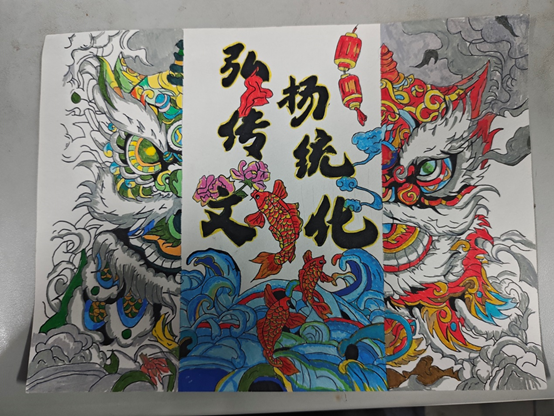 弘扬
传统
文化